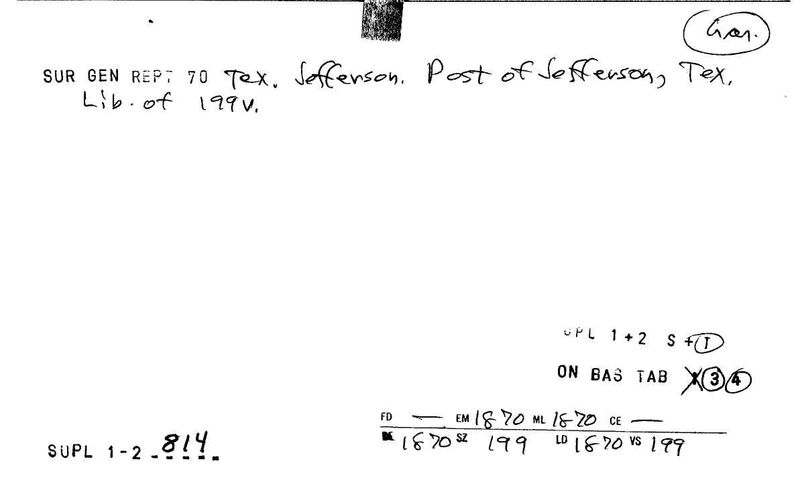 Gar.
SUR GEN REPT 70 Tex. Jefferson. Post of Jefferson, Tex.
Lib. of 199v.
SUPL 1+2 S + I
ON BAS TAB X 3 4
FD — EM 1870 ML 1870 CE —
1870 SZ 199 LD 1870 VS 199
SUPL 1-2 814